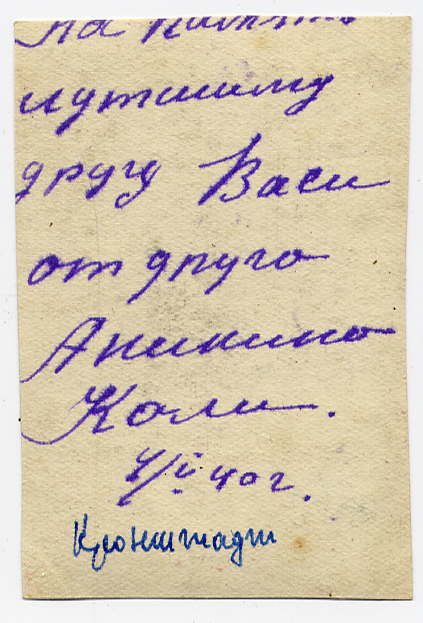 на память
лутшиму
другу Васи
от друга
Аникина
Коли.
4/II 40 г.
Кронштадт